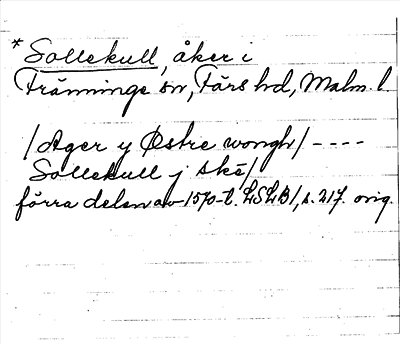 *Sollekull, åker i
Tränninge sn, Färs hd, Malm. l.
/Ager y Østre wongh/ ----
Sollekull j skê/
förra delen av 1570-t. LSLB1, s. 217. orig.